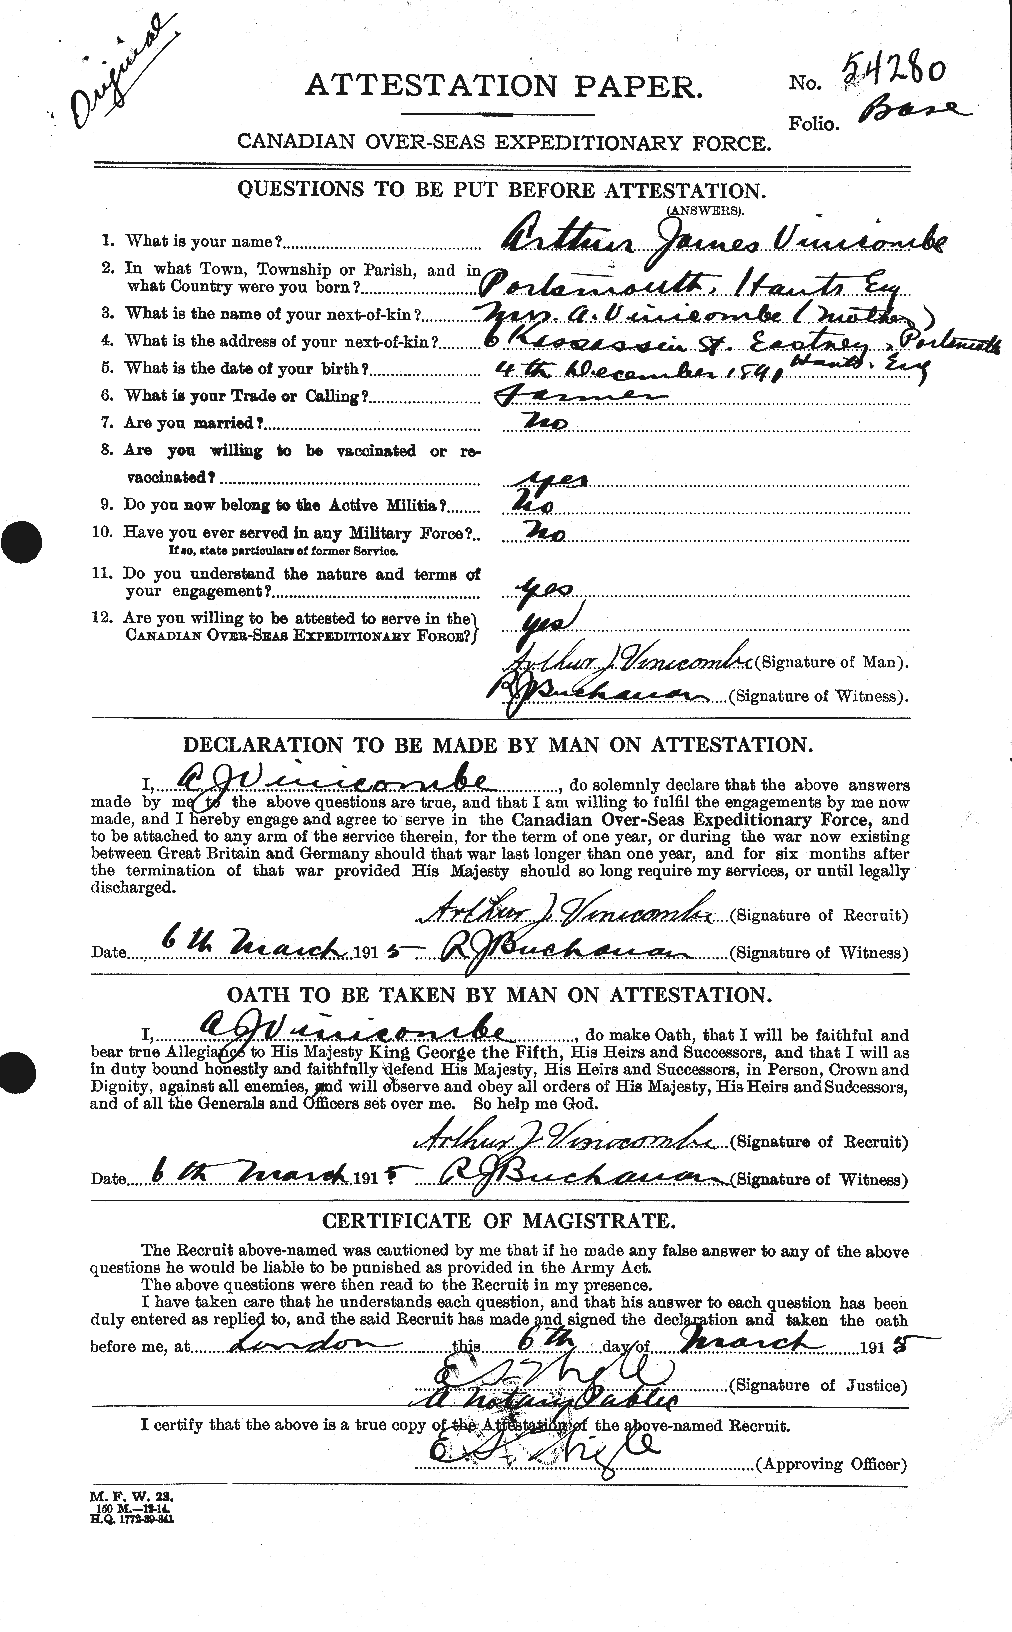 Original
ATTESTATION PAPER.
No. 54280
Folio. Base
CANADIAN OVER-SEAS EXPEDITIONARY FORCE.
QUESTIONS TO BE PUT BEFORE ATTESTATION.
(ANSWERS).
1. What is your name? Arthur James Vinicombe
2. In what Town, Township or Parish, and in
what Country were you born? Portsmouth, Hants Eng
3. What is the name of your next-of-kin? Mrs. A. Vinicombe (Mother)
4. What is the address of your next-of-kin? 6 Kassassin St. Eastney, Portsmouth
Hants. Eng
5. What is the date of your birth? 4th December 1891
6. What is your Trade or Calling? Farmer
7. Are you married? No
8. Are you willing to be vaccinated or re-
vaccinated? yes
9. Do you now belong to the Active Militia? No
10. Have you ever served in any Military Force? No
If so, state particulars of former Service.
11. Do you understand the nature and terms of
your engagement? yes
12. Are you willing to be attested to serve in the
CANADIAN OVER-SEAS EXPEDITIONARY FORCE? yes
Arthur J. Vinicombe (Signature of Man).
R J Buchanan (Signature of Witness).
DECLARATION TO BE MADE BY MAN ON ATTESTATION.
I, A J Vinicombe, do solemnly declare that the above answers
made by me to the above questions are true, and that I am willing to fulfil the engagements by me now
made, and I hereby engage and agree to serve in the Canadian Over-Seas Expeditionary Force, and
to be attached to any arm of the service therein, for the term of one year, or during the war now existing
between Great Britain and Germany should that war last longer than one year, and for six months after
the termination of that war provided His Majesty should so long require my services, or until legally
discharged.
Arthur J. Vinicombe (Signature of Recruit)
Date 6th March 1915 R J Buchanan (Signature of Witness)
OATH TO BE TAKEN BY MAN ON ATTESTATION.
I, A J Vinicombe, do make Oath, that I will be faithful and
bear true Allegiance to His Majesty King George the Fifth, His Heirs and Successors, and that I will as
in duty bound honestly and faithfully defend His Majesty, His Heirs and Successors, in Person, Crown and
Dignity, against all enemies, and will observe and obey all orders of His Majesty, His Heirs and Successors,
and of all the Generals and Officers set over me. So help me God.
Arthur J. Vinicombe (Signature of Recruit)
Date 6th March 1915 R J Buchanan (Signature of Witness)
CERTIFICATE OF MAGISTRATE.
The Recruit above-named was cautioned by me that if he made any false answer to any of the above
questions he would be liable to be punished as provided in the Army Act.
The above questions were then read to the Recruit in my presence.
I have taken care that he understands each question, and that his answer to each question has been
duly entered as replied to, and the said Recruit has made and signed the declaration and taken the oath
before me, at London this 6th day of March 1915
(Signature of Justice)
A Notary Public
I certify that the above is a true copy of the Attestation of the above-named Recruit.
(Approving Officer)
M. F. W. 23.
150 M.—12-14.
H.Q. 1772-39-841.